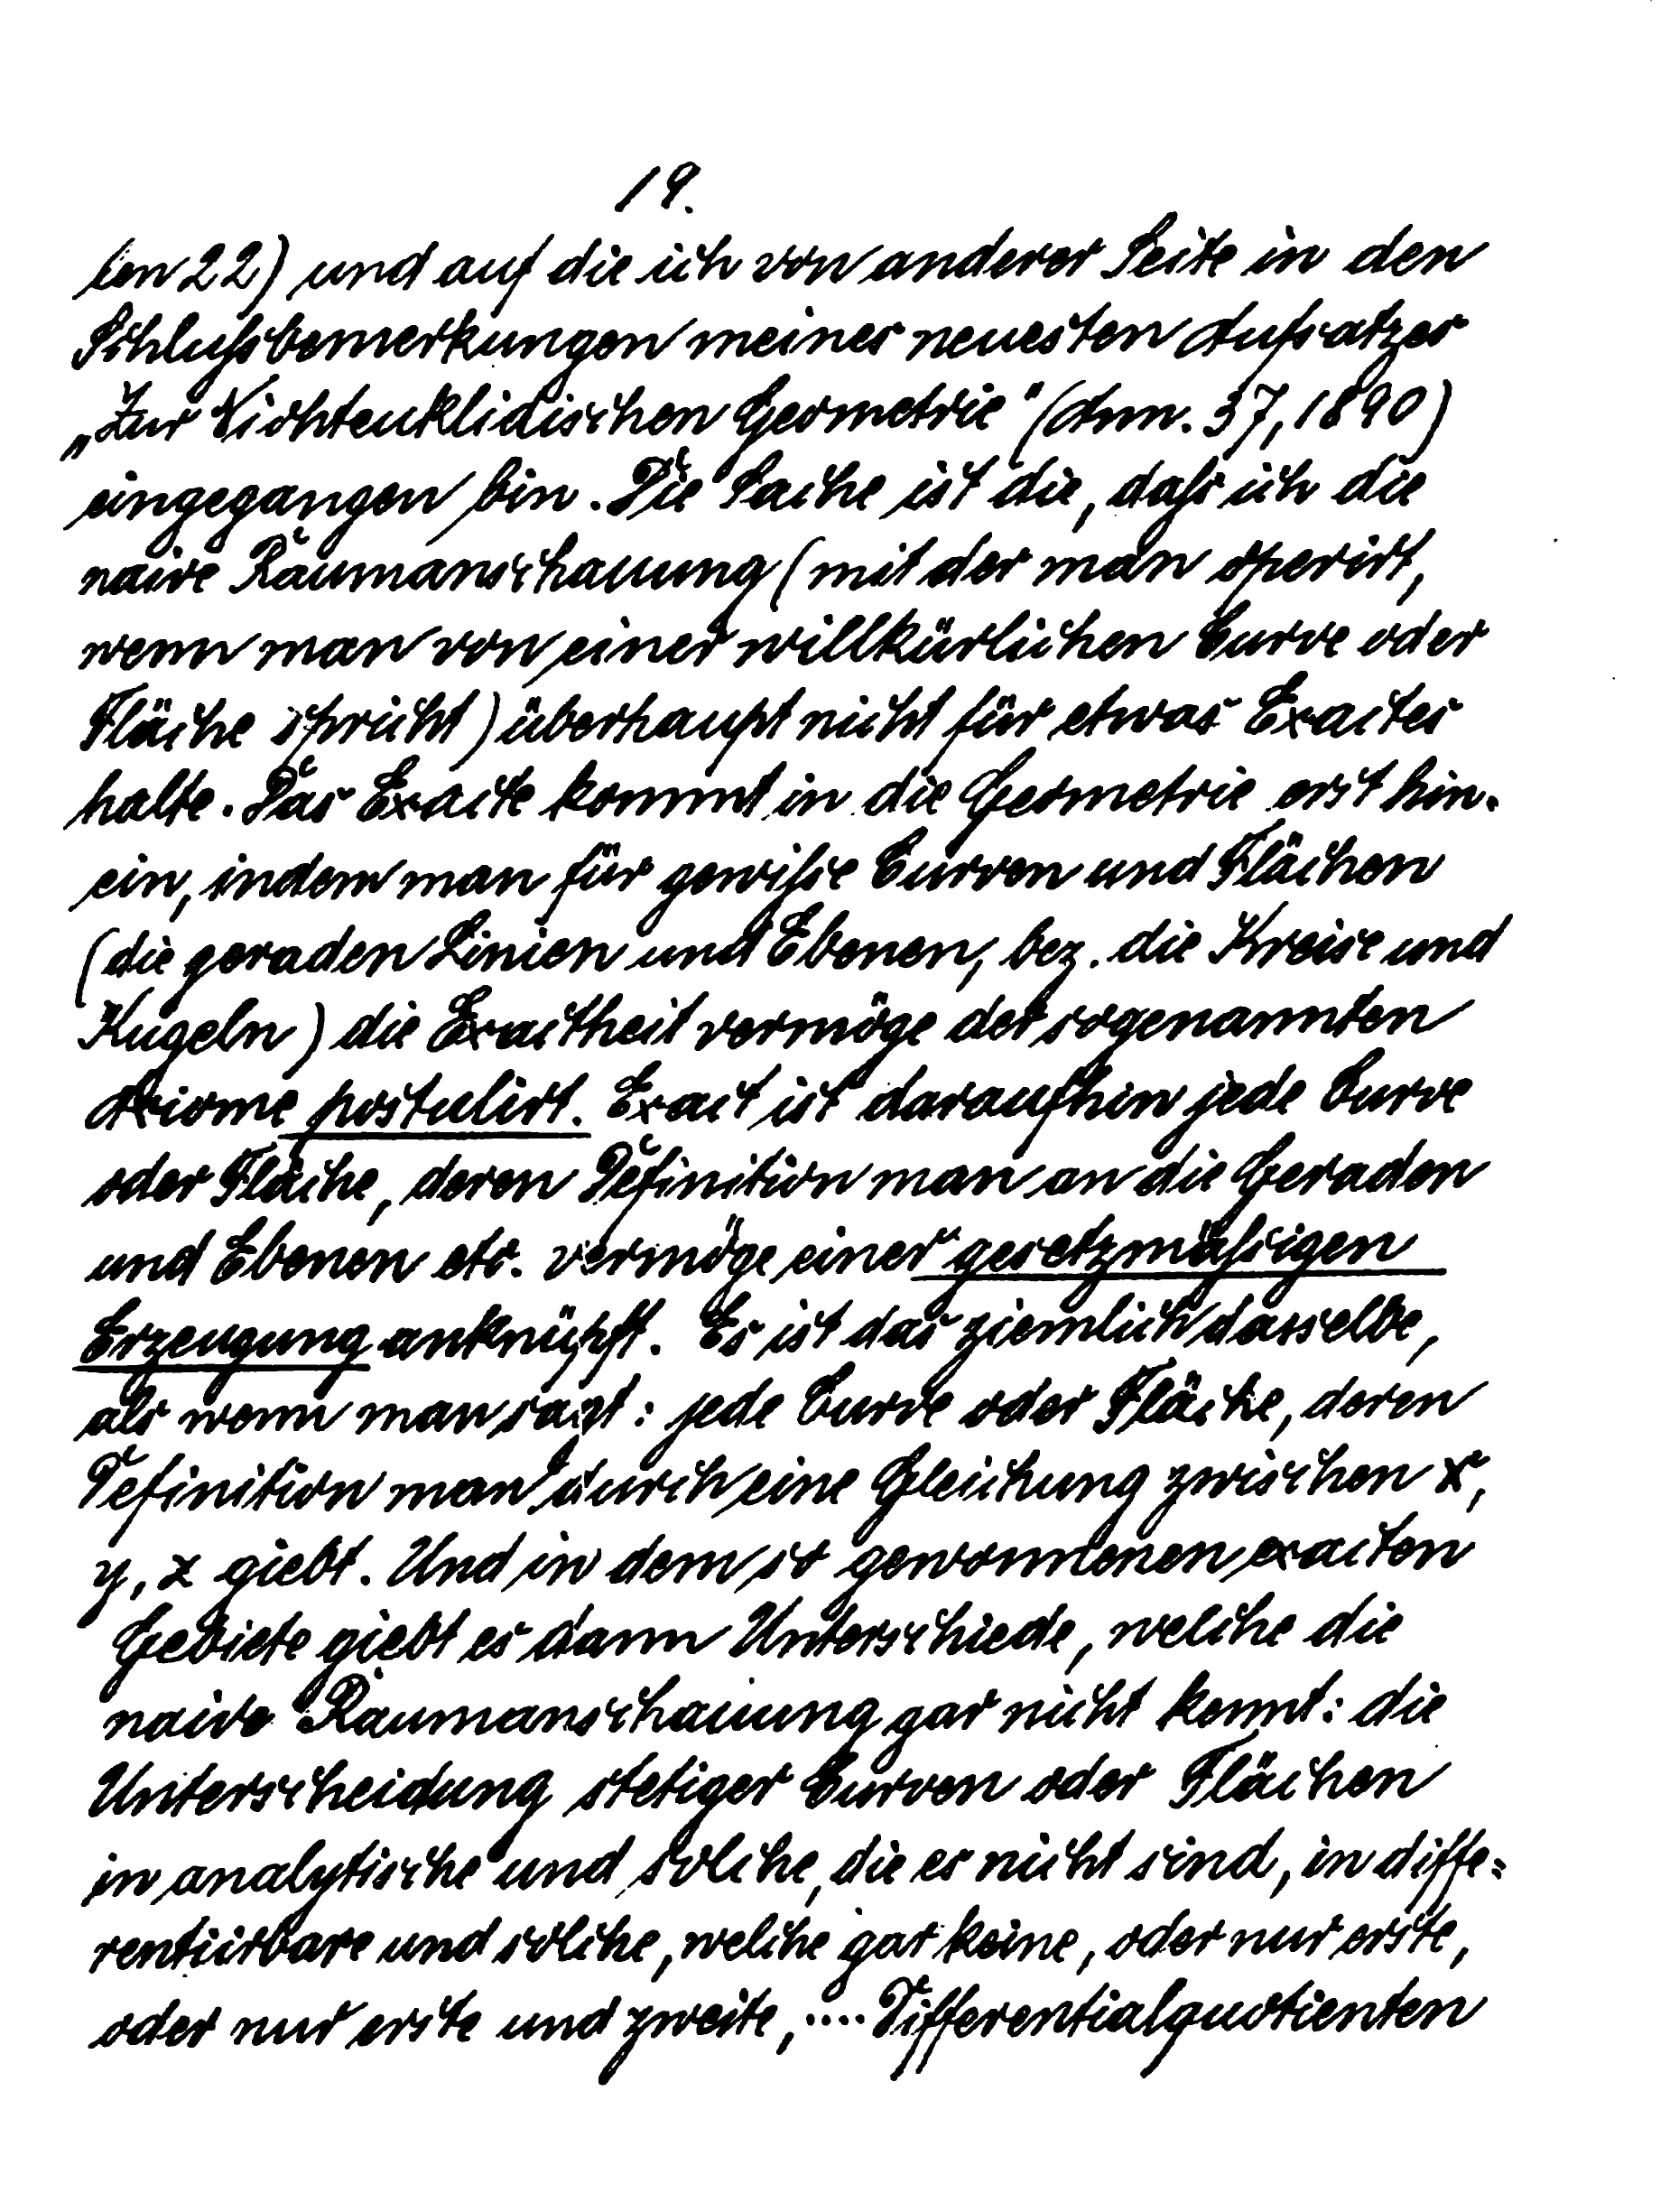 19.
len 22) und auf die ich von anderer Seite in den
Schlußbemerkungen meines neuesten Aufsatzes
„Zur Nichteuklidischen Geometrie" (Ann. 37, 1890)
eingegangen bin. Die Sache ist die, daß ich die
naive Raumanschauung (mit der man operirt,
wenn man von einer willkürlichen Curve oder
Fläche spricht) überhaupt nicht für etwas Exactes
halte. Das Exacte kommt in die Geometrie erst hin-
ein, indem man für gewiße Curven und Flächen
(die geraden Linien und Ebenen, bez. die Kreise und
Kugeln) die Exactheit vermöge der sogenannten
Axiome postulirt. Exact ist daraufhin jede Curve
oder Fläche, deren Definition man an die Geraden
und Ebenen etc. vermöge einer gesetzmäßigen
Erzeugung anknüpft. Es ist das ziemlich dasselbe,
als wenn man sagt: jede Curve oder Fläche, deren
Definition man durch eine Gleichung zwischen x,
y, z giebt. Und in dem so gewonnenen exacten
Gebiete giebt es dann Unterschiede, welche die
naive Raumanschauung gar nicht kennt: die
Unterscheidung stetiger Curven oder Flächen
in analytische und solche, die es nicht sind, in diffe=
rentiirbare und solche, welche gar keine, oder nur erste,
oder nur erste und zweite, .... Differentialquotienten